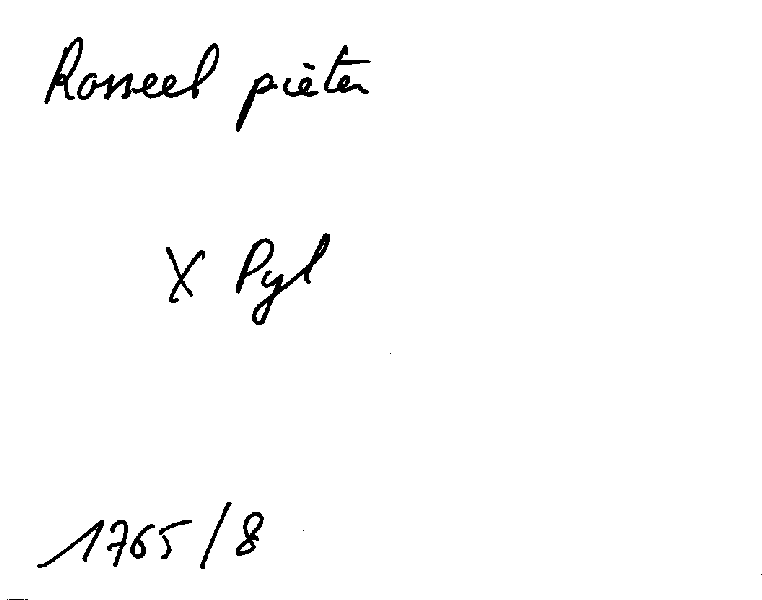 Rosseel pieter
X Pyl
1765/8